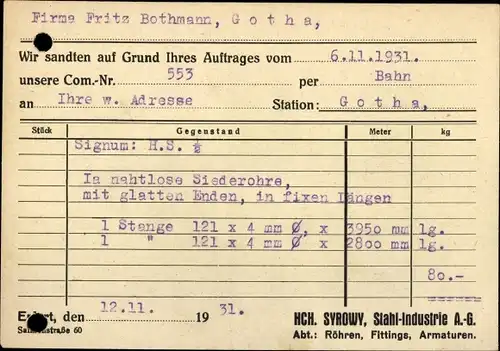 Firma Fritz Bothmann, G o t h a,
Wir sandten auf Grund Ihres Auftrages vom 6.11.1931.
unsere Com.-Nr. 553 per Bahn
an Ihre w. Adresse Station: G o t h a,
Stück Gegenstand Meter kg
Signum: H.S. ½
Ia nahtlose Siederohre,
mit glatten Enden, in fixen Längen
1 Stange 121 x 4 mm Ø, x 3950 mm lg.
1 " 121 x 4 mm Ø, x 2800 mm lg.
80.-
=======
den 12.11. 19 31. HCH. SYROWY, Stahl-Industrie A.-G.
60 Abt.: Röhren, Fittings, Armaturen.